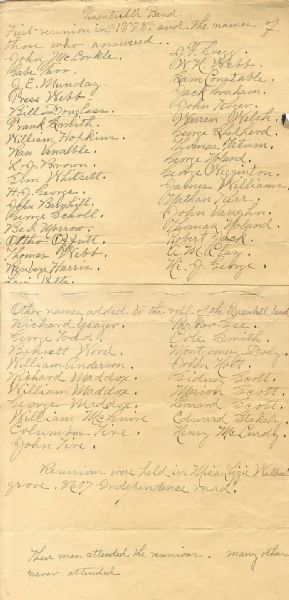 Quantrill's Band
First reunion in 1898. and the names of
those who answered..
John McCorkle.
Babe Parr.
J. E. Munday
Press Webb
Bill Douglass.
Frank Smith.
William Hopkins.
Van Venable.
L. J. Brown.
Sim Whitsett.
H. J. George.
John Barnhill.
George Scholl.
Ben Morrow.
Otho Offutt.
Thomas Webb.
Reuben Harris.
J. F. Gregg.
W. N. Webb.
Sam Constable.
Jack Graham.
John Koger.
Warren Welch.
George Shepherd.
Thomas Tatum.
George Noland.
George Wigginton.
James Williams.
Nathan Kerr.
John Vaughn.
Noland.
Robert Jack.
A. M. Clay.
Hi. J. George.
Other names added to the roll of the Quantrell band
Richard Yeager.
George Todd.
Bennett Wood.
William Anderson.
Richard Maddox.
William Maddox.
George Maddox.
William McGuire
Columbus Tire.
John Tire.
Cole Smith.
Montgomery
John Holt.
Sidney Scott.
Marion Scott.
Scott.
Edward Blakely.
Henry McCurdy.
Reunion were held in Miss Lizzie Wallace
grove. 8607 Independence road.
These men attended the reunions. many other
never attended